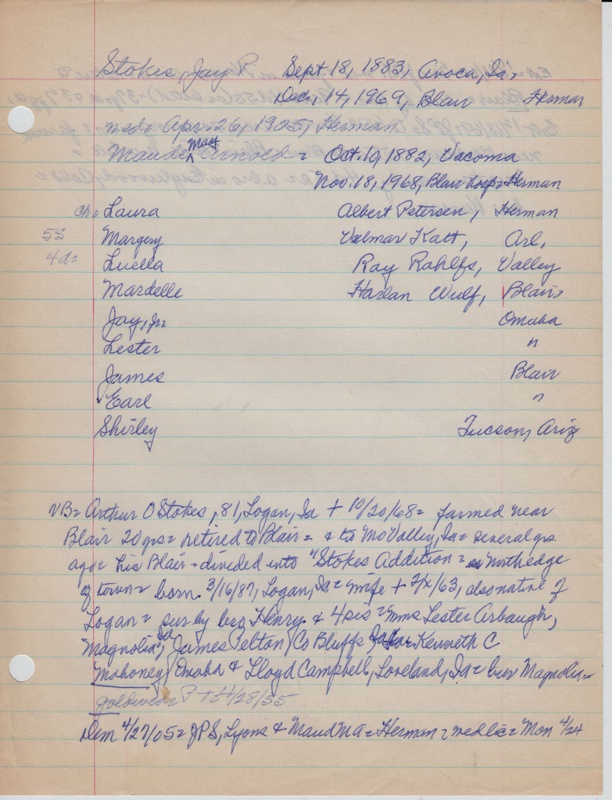 Stokes, Jay P. Sept. 18, 1883, Avoca, Ia=
Dec. 14, 1969, Blair Herman
med= Apr. 26, 1905, Herman
Maude May Arnold = Oct. 10, 1882, Vacoma
Nov. 18, 1968, Blair hosp= Herman
Ch= Laura Albert Petersen, Herman
5s Margery Valmar Katt, Arl,
4d= Luella Ray Rahlfs, Valley
Mardelle Harlan Wulf, Blair
Jay, Jr Omaha
Lester "
James Blair
Earl "
Shirley Tucson, Ariz
VB= Arthur O Stokes, 81, Logan, Ia + 10/20/68= farmed near
Blair 20 yrs= retired to Blair= & to Mo Valley, Ia= several yrs
ago= his Blair= divided into "Stokes Addition= on north edge
of town= born 3/16/87, Logan, Ia= wife + /63, also native of
Logan= sur by bro Henry & 4 sis= Mms Lester Arbaugh,
Magnolia, James Pelton, Co Bluffs, Kenneth C
Mahoney, Omaha & Lloyd Campbell, Loveland, Ia= bur Magnolia=
P + 4/28/55
Dem 4/27/05= JPS, Lyons & Maud MA= Herman= wed lic= Mon 4/24